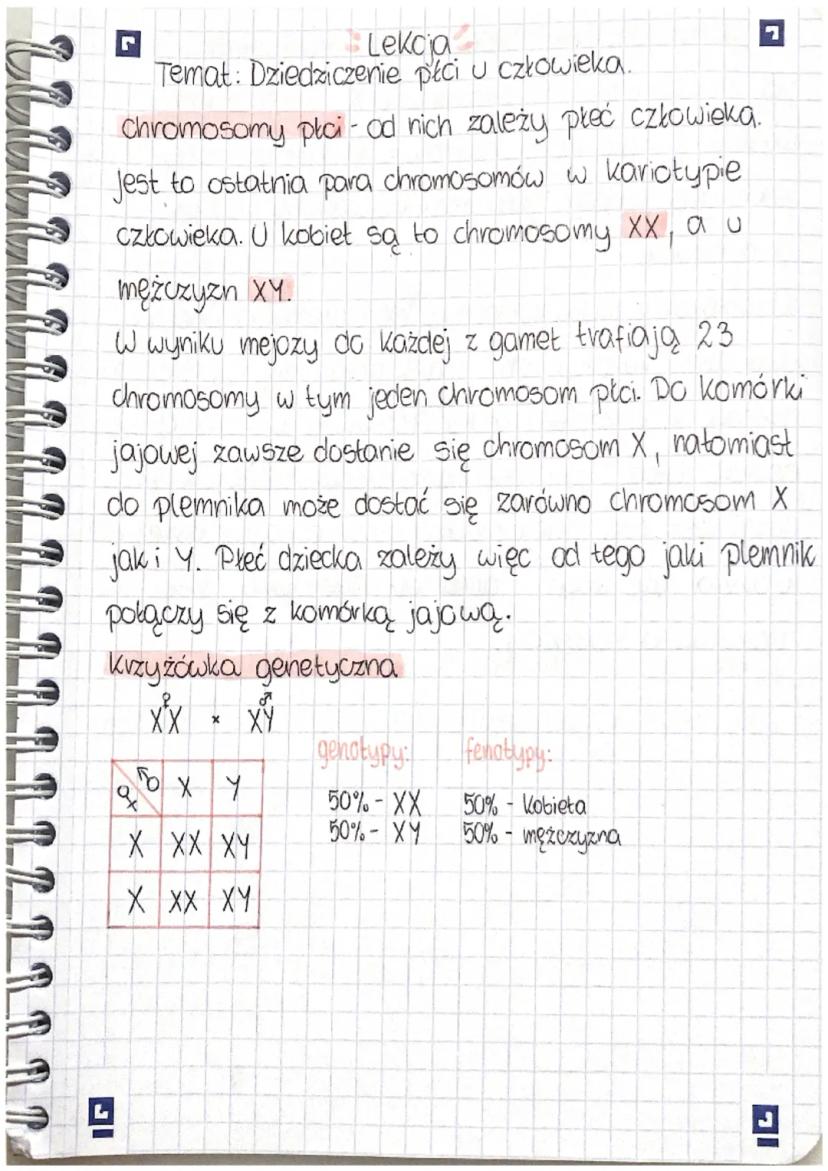 Lekcja
Temat: Dziedziczenie płci u człowieka.
chromosomy płci - od nich zależy płeć człowieka.
Jest to ostatnia para chromosomów w kariotypie
człowieka. U kobiet są to chromosomy XX, a u
mężczyzn XY.
W wyniku mejozy do każdej z gamet trafiają 23
chromosomy w tym jeden chromosom płci. Do komórki
jajowej zawsze dostanie się chromosom X, natomiast
do plemnika może dostać się zarówno chromosom X
jak i Y. Płeć dziecka zależy więc od tego jaki plemnik
połączy się z komórką jajową.
Krzyżówka genetyczna
♀ ♂
XX × XY
genotypy: fenotypy:
♀ ♂ X Y
50% - XX 50% - kobieta
50% - XY 50% - mężczyzna
X XX XY
X XX XY